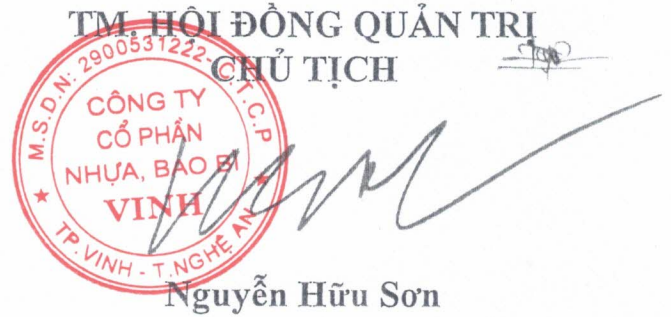 TM. HỘI ĐỒNG QUẢN TRỊ
CHỦ TỊCH
M.S.D.N: 2900531222-C.T.C.P
CÔNG TY
CỔ PHẦN
NHỰA, BAO BÌ
VINH
TP. VINH - T. NGHỆ AN
Nguyễn Hữu Sơn